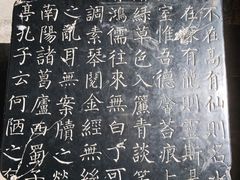 不在高有仙則名
在深有龍則靈斯是
室惟吾德馨苔痕上
綠草色入簾青談笑
鴻儒往來無白丁可
調素琴閱金經無
之亂耳無案牘之
南陽諸葛廬西蜀子
亭孔子云何陋之有